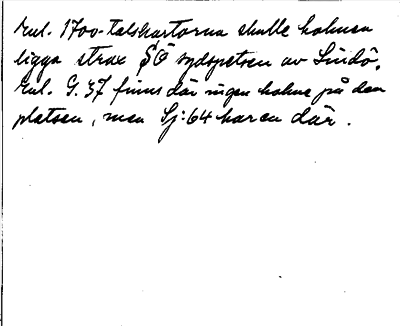 Enl. 1700-talskartorna skulle holmen
ligga strax SÖ sydspetsen av Lindö.
Enl. G. 37 finns där ingen holme på den
platsen, men Sj: 64 har en där.